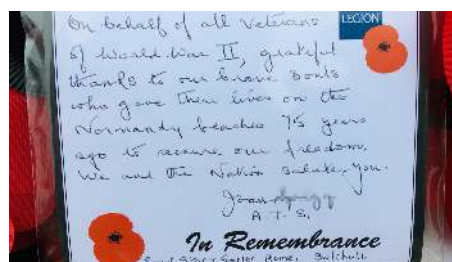 On behalf of all Veterans
LEGION
of World War II, grateful
thanks to our brave souls
who gave their lives on the
Normandy beaches 75 years
ago to secure our freedom.
We and the Nation salute you.
Joan
A.T.S.
In Remembrance